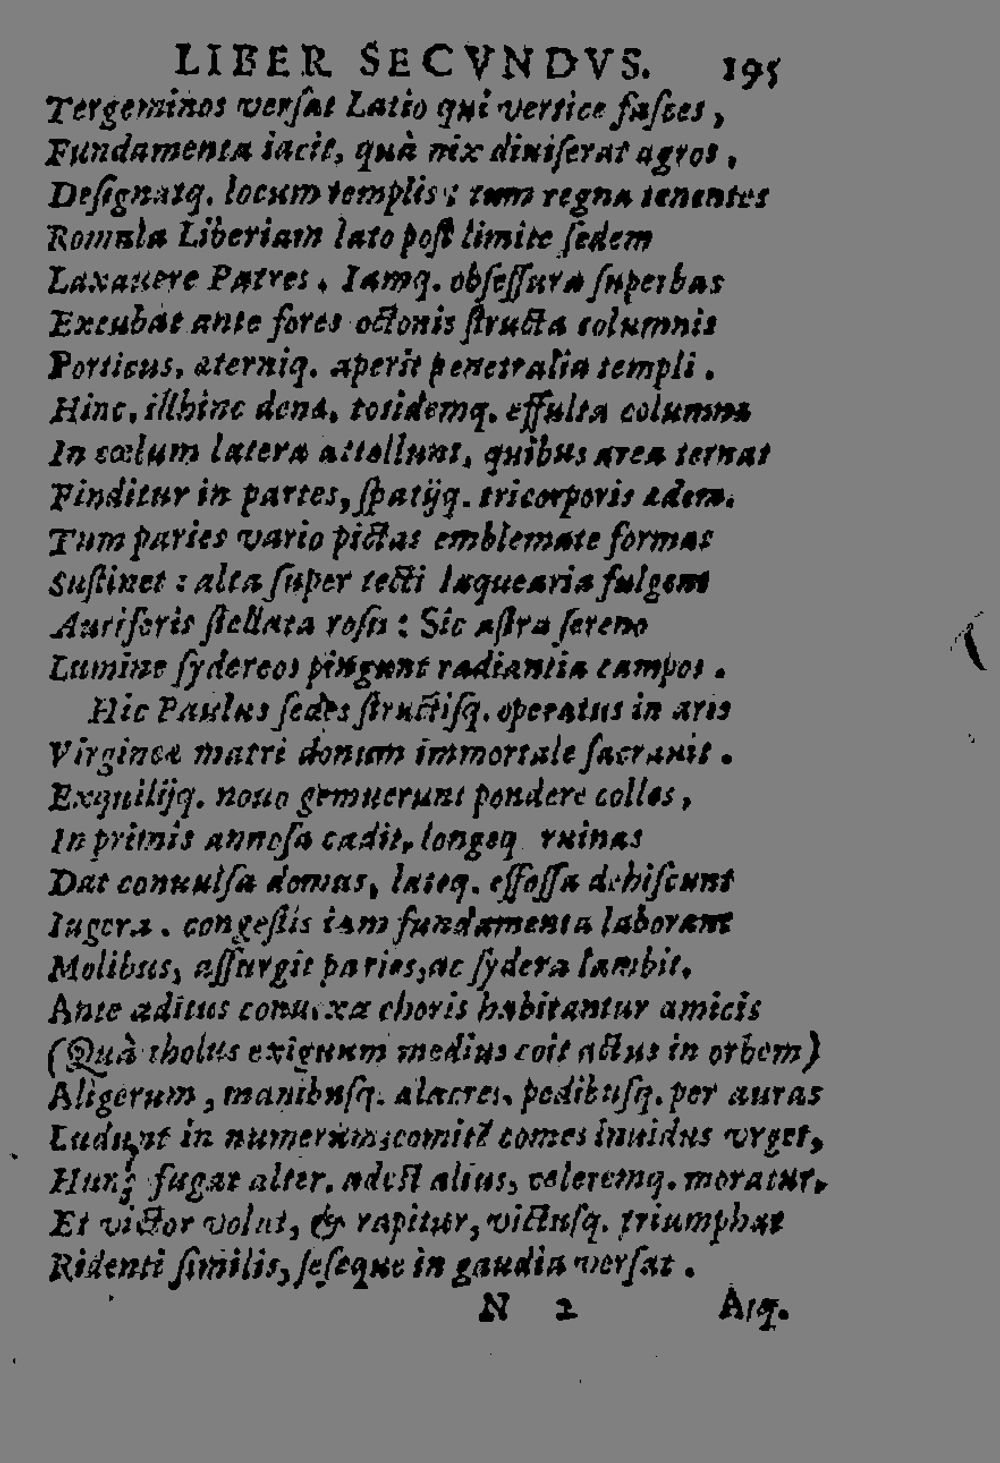 LIBER SECVNDVS. 195
Tergeminos verſat Latio qui vertice faſces,
Fundamenta iacit, quà nix diuiſerat agros.
Deſignatq. locum templis: tum regna tenentes
Romula Liberiam lato poſt limite ſedem
Laxauere Patres. Iamq. obſeſſura ſuperbas
Excubat ante fores octonis ſtructa columnis
Porticus, æterniq. aperit penetralia templi.
Hinc, illhinc denæ, totidemq. effulta columnæ
In cœlum latera attollunt, quibus area ternas
Finditur in partes, ſpatijq. tricorporis ædem.
Tum paries vario pictas emblemate formas
Suſtinet: alta ſuper tecti laquearia fulgent
Auriferis ſtellata roſis: Sic aſtra ſereno
Lumine ſydereos pingunt radiantia campos.
Hic Paulus ſedes ſtructiſq. operatus in aris
Virgineæ matri donum immortale ſacrauit.
Exquilijq. nouo gemuerunt pondere colles,
In primis annoſa cadit, longeq ruinas
Dat conuulſa domus, lateq. effoſſa dehiſcunt
Iugera. congeſtis iam fundamenta laborant
Molibus, aſſurgit paries, ac ſydera lambit.
Ante aditus conuexa choris habitantur amicis
(Quà tholus exiguum medius coit actus in orbem)
Aligerum, manibuſq. alacres, pedibuſq. per auras
Ludunt in numerum; comitẽ comes inuidus vrget,
Hunc fugat alter, adeſt alius, celeremq. moratur,
Et victor volat, & rapitur, victuſq. triumphat
Ridenti ſimilis, ſeſeque in gaudia verſat.
N 2 Atq.